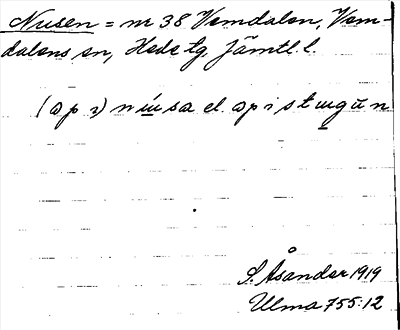 Nusen = nr 38 Vemdalen, Vem-
dalens sn, Hede tg. Jämtl. l.
(ɔp ı) nɯ́sa el. ɔp i stɯgū́n
S. Åsander 1919
Ulma 755:12